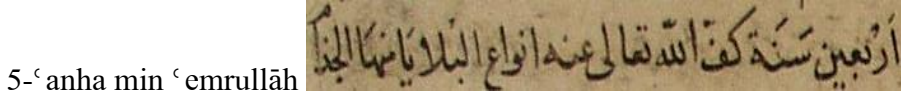 5-ʿanha min ʿemrullāh اَرْبَعِينَ سَنَة كَفَّ اللّه تعالى عنه انواع البَلَايَا مِنهَا الجُذَا